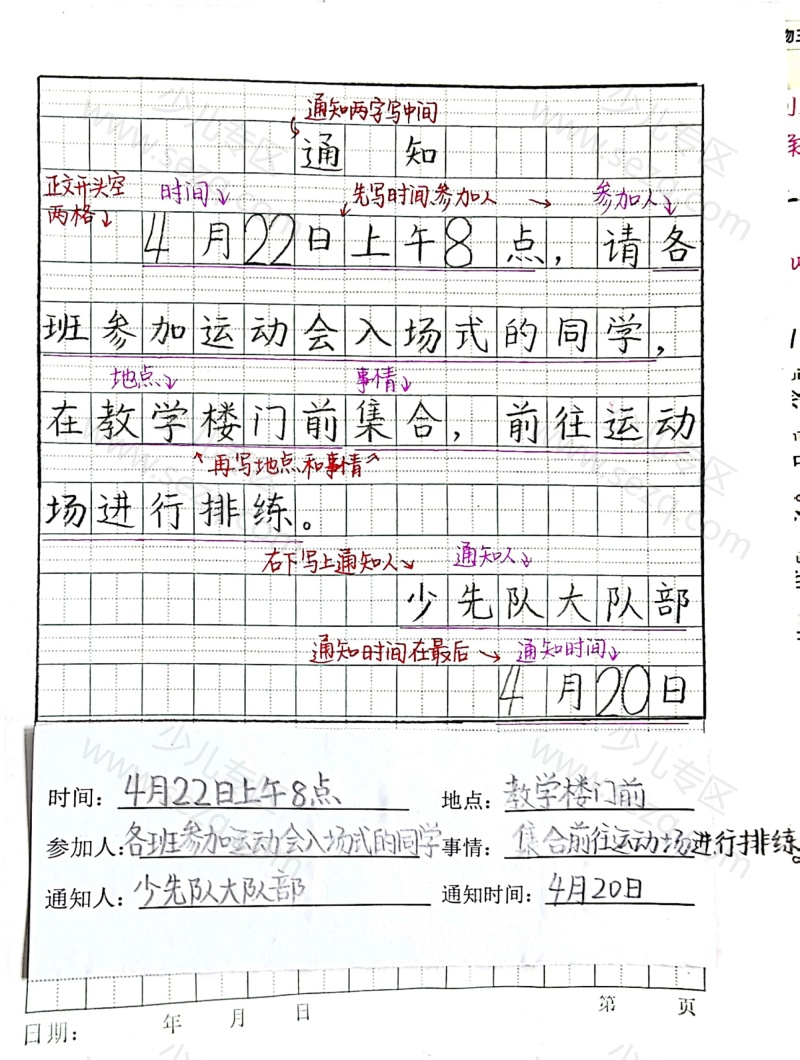 通知两字写中间
通 知
正文开头空
两格
时间
先写时间、参加人
参加人
4月22日上午8点，请各
班参加运动会入场式的同学，
地点
事情
在教学楼门前集合，前往运动
再写地点和事情
场进行排练。
右下写上通知人
通知人
少先队大队部
通知时间在最后
通知时间
4月20日
时间：4月22日上午8点 地点：教学楼门前
参加人：各班参加运动会入场式的同学 事情：集合前往运动场进行排练。
通知人：少先队大队部 通知时间：4月20日
第 页
日期： 年 月 日
少儿专区
www.sezq.com